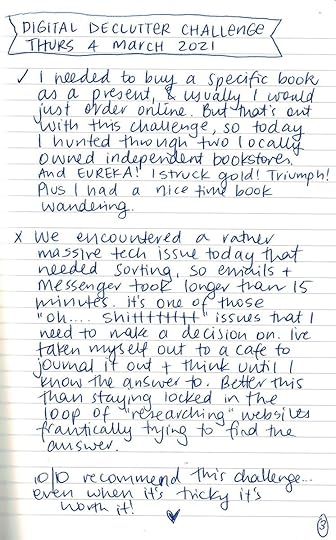 DIGITAL DECLUTTER CHALLENGE
THURS 4 MARCH 2021
✓ I needed to buy a specific book
as a present, & usually I would
just order online. But that's out
with this challenge, so today
I hunted through two locally
owned independent bookstores.
And EUREKA! I struck gold! Triumph!
Plus I had a nice time book
wandering.
x We encountered a rather
massive tech issue today that
needed sorting, so emails +
messenger took longer than 15
minutes. it's one of those
"oh.... Shitttttttt" issues that I
need to make a decision on. I've
taken myself out to a cafe to
journal it out + think until I
know the answer to. Better this
than staying locked in the
loop of "researching" websites
frantically trying to find the
answer.
10/10 recommend this challenge...
even when it's tricky it's
worth it!
3